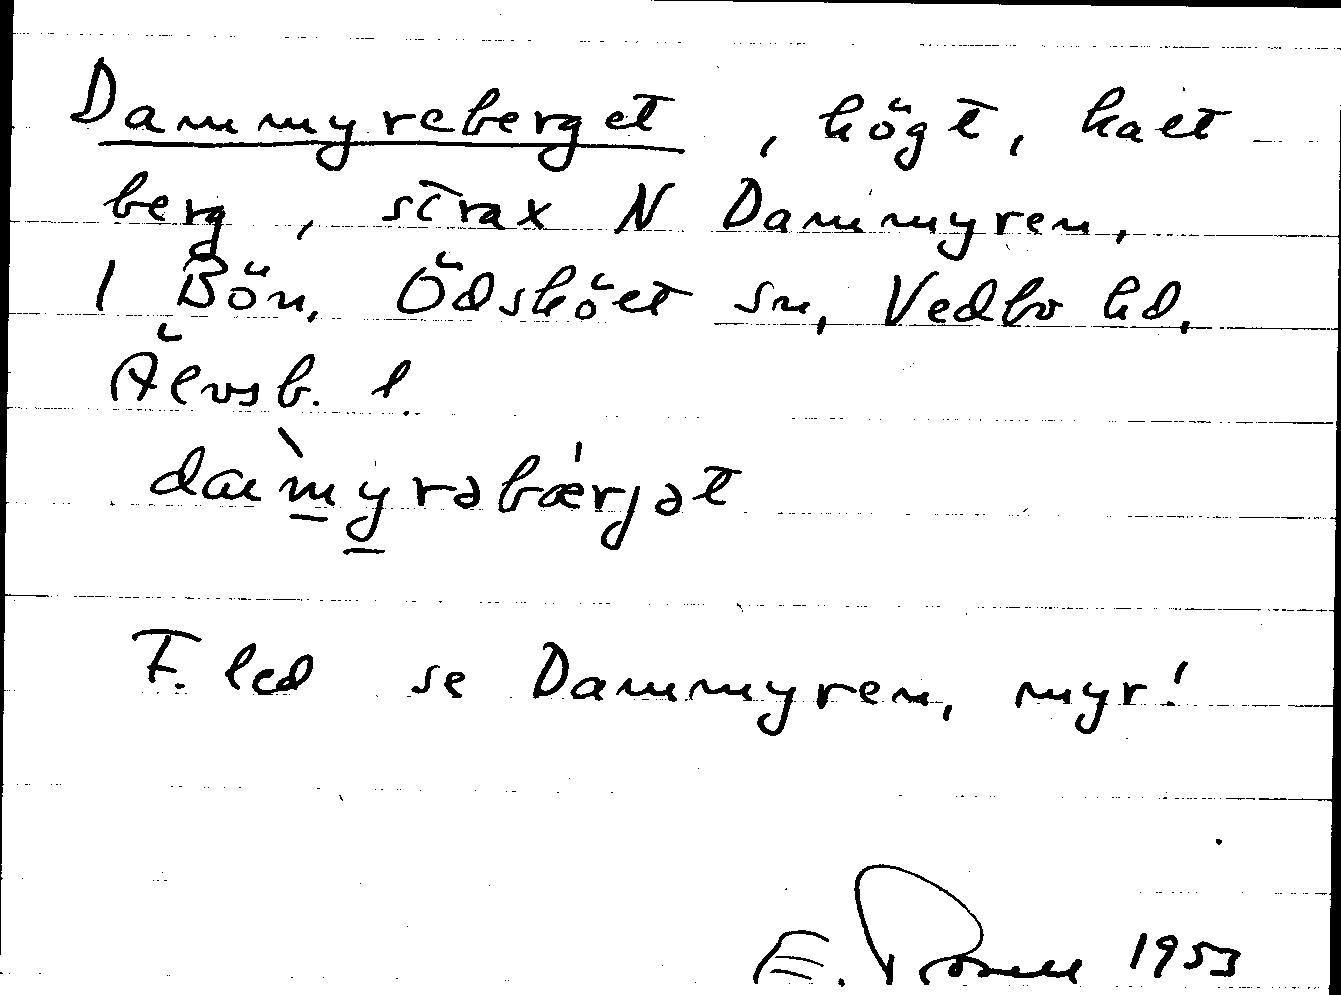 Dammyreberget, högt, kalt
berg, strax N Dammyren,
I Bön, Ödskölt sn, Vedbo hd,
Älvsb. l.
dam̀yrəbærjət
F. led se Dammyren, myr!
E. 1953